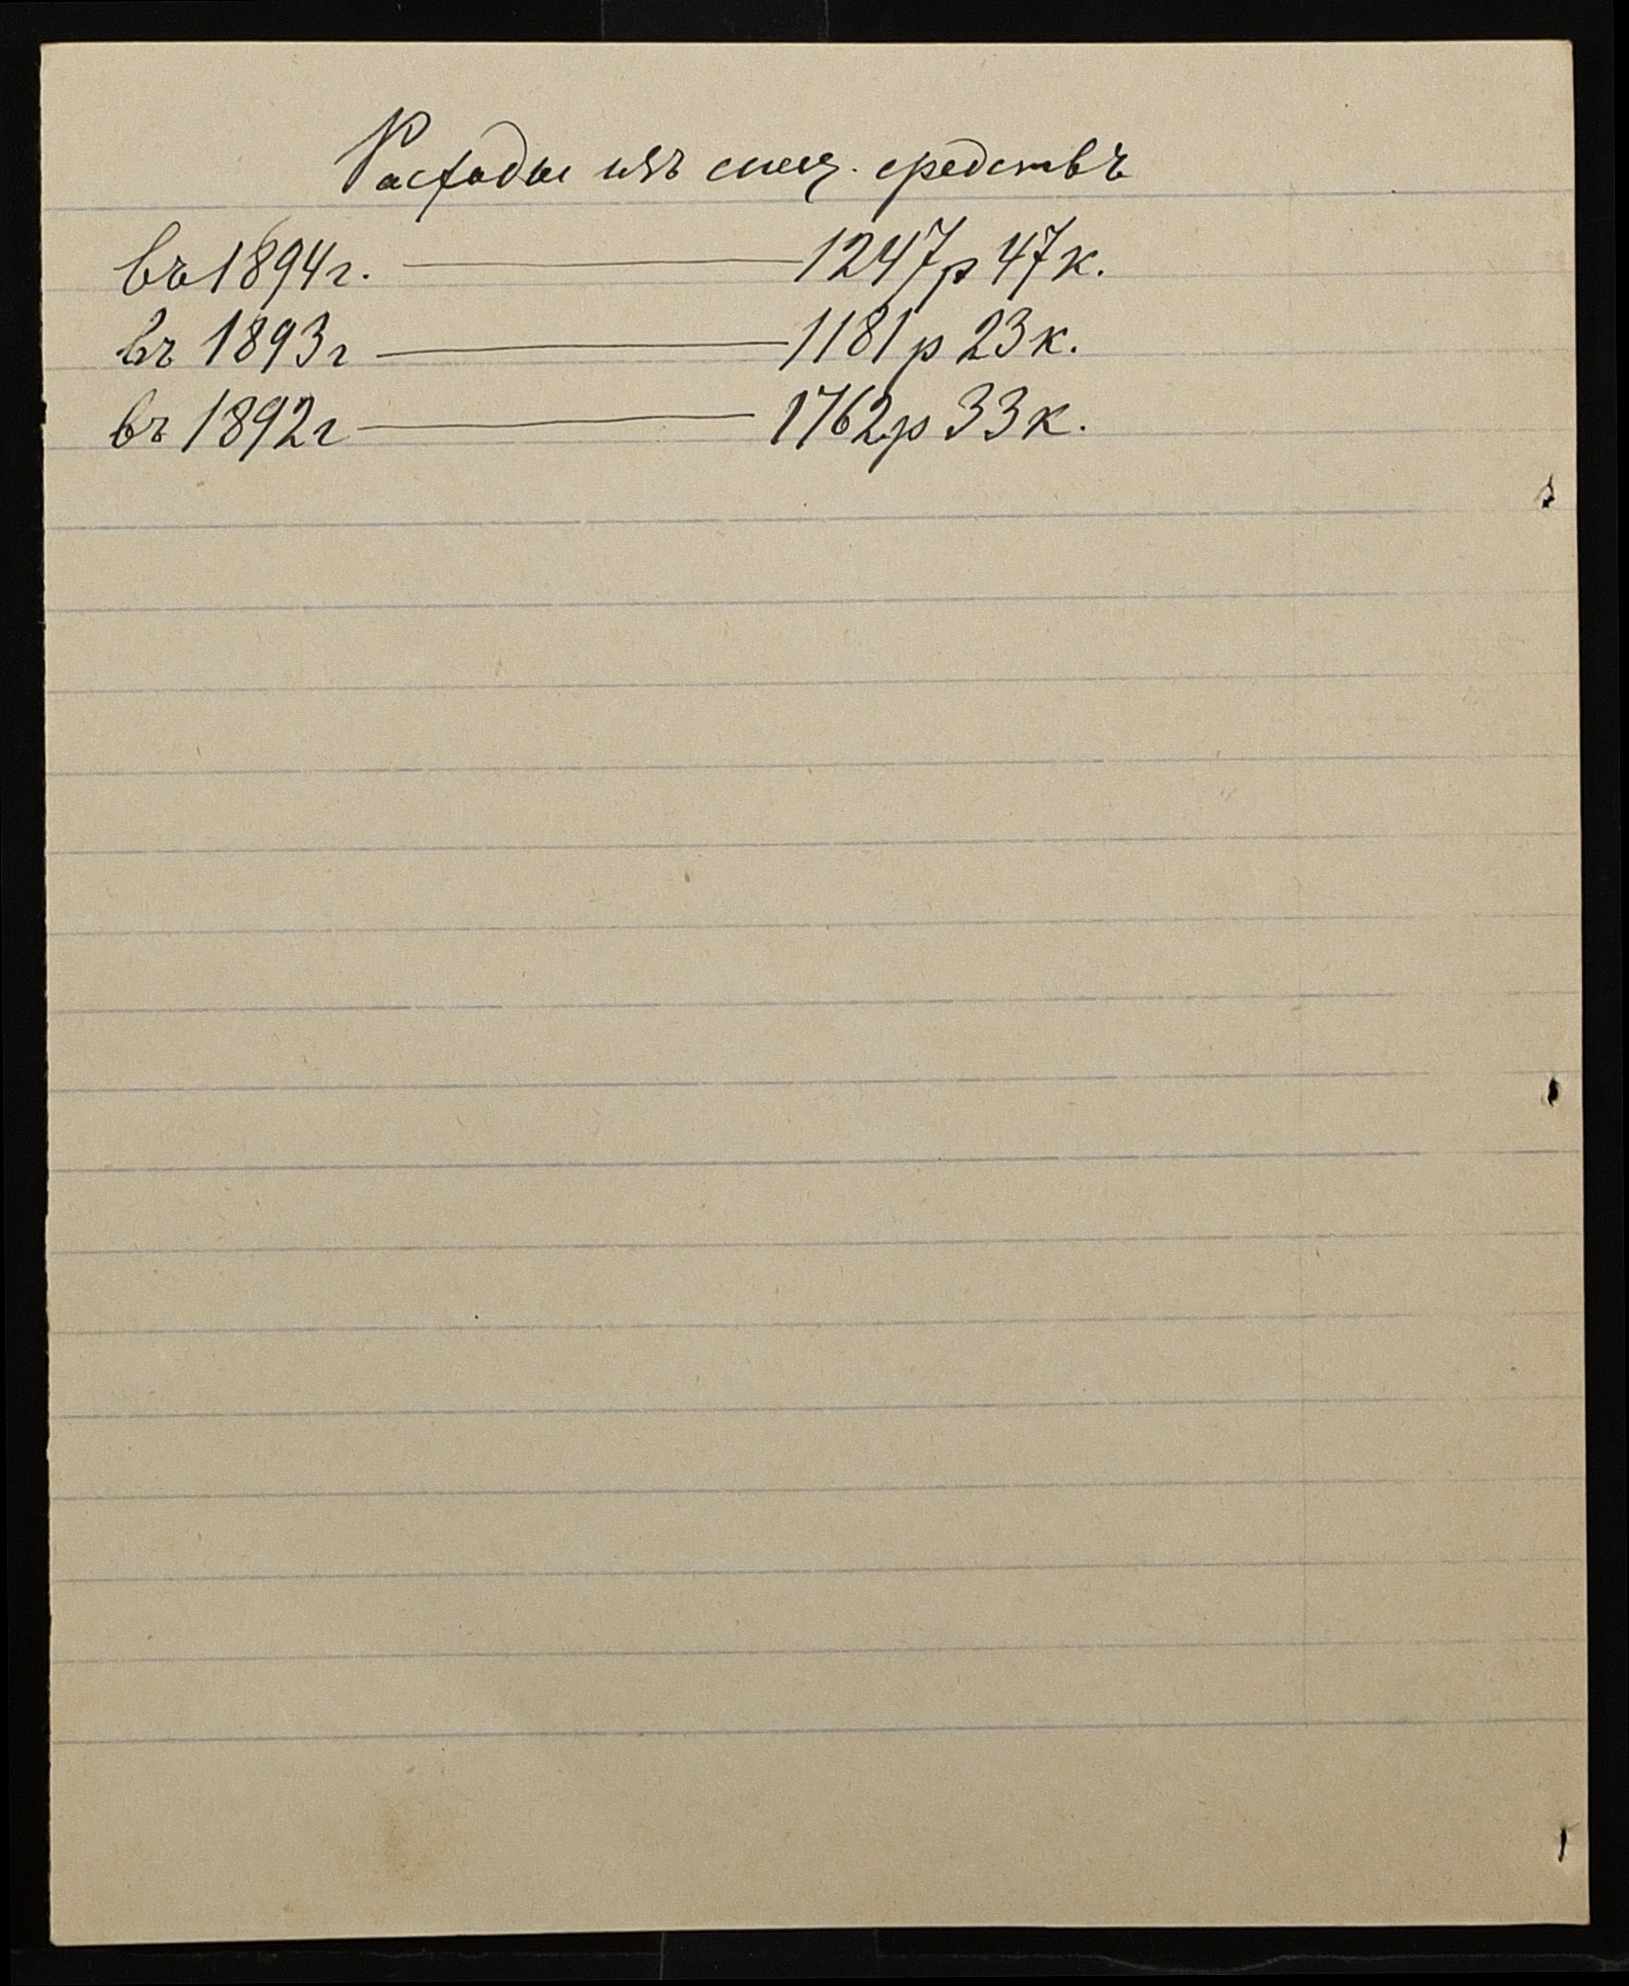 Расходы изъ спец. средствъ
въ 1894 г. ———— 1247 р 47 к.
въ 1893 г ———— 1181 р 23 к.
въ 1892 г ———— 1762 р 33 к.